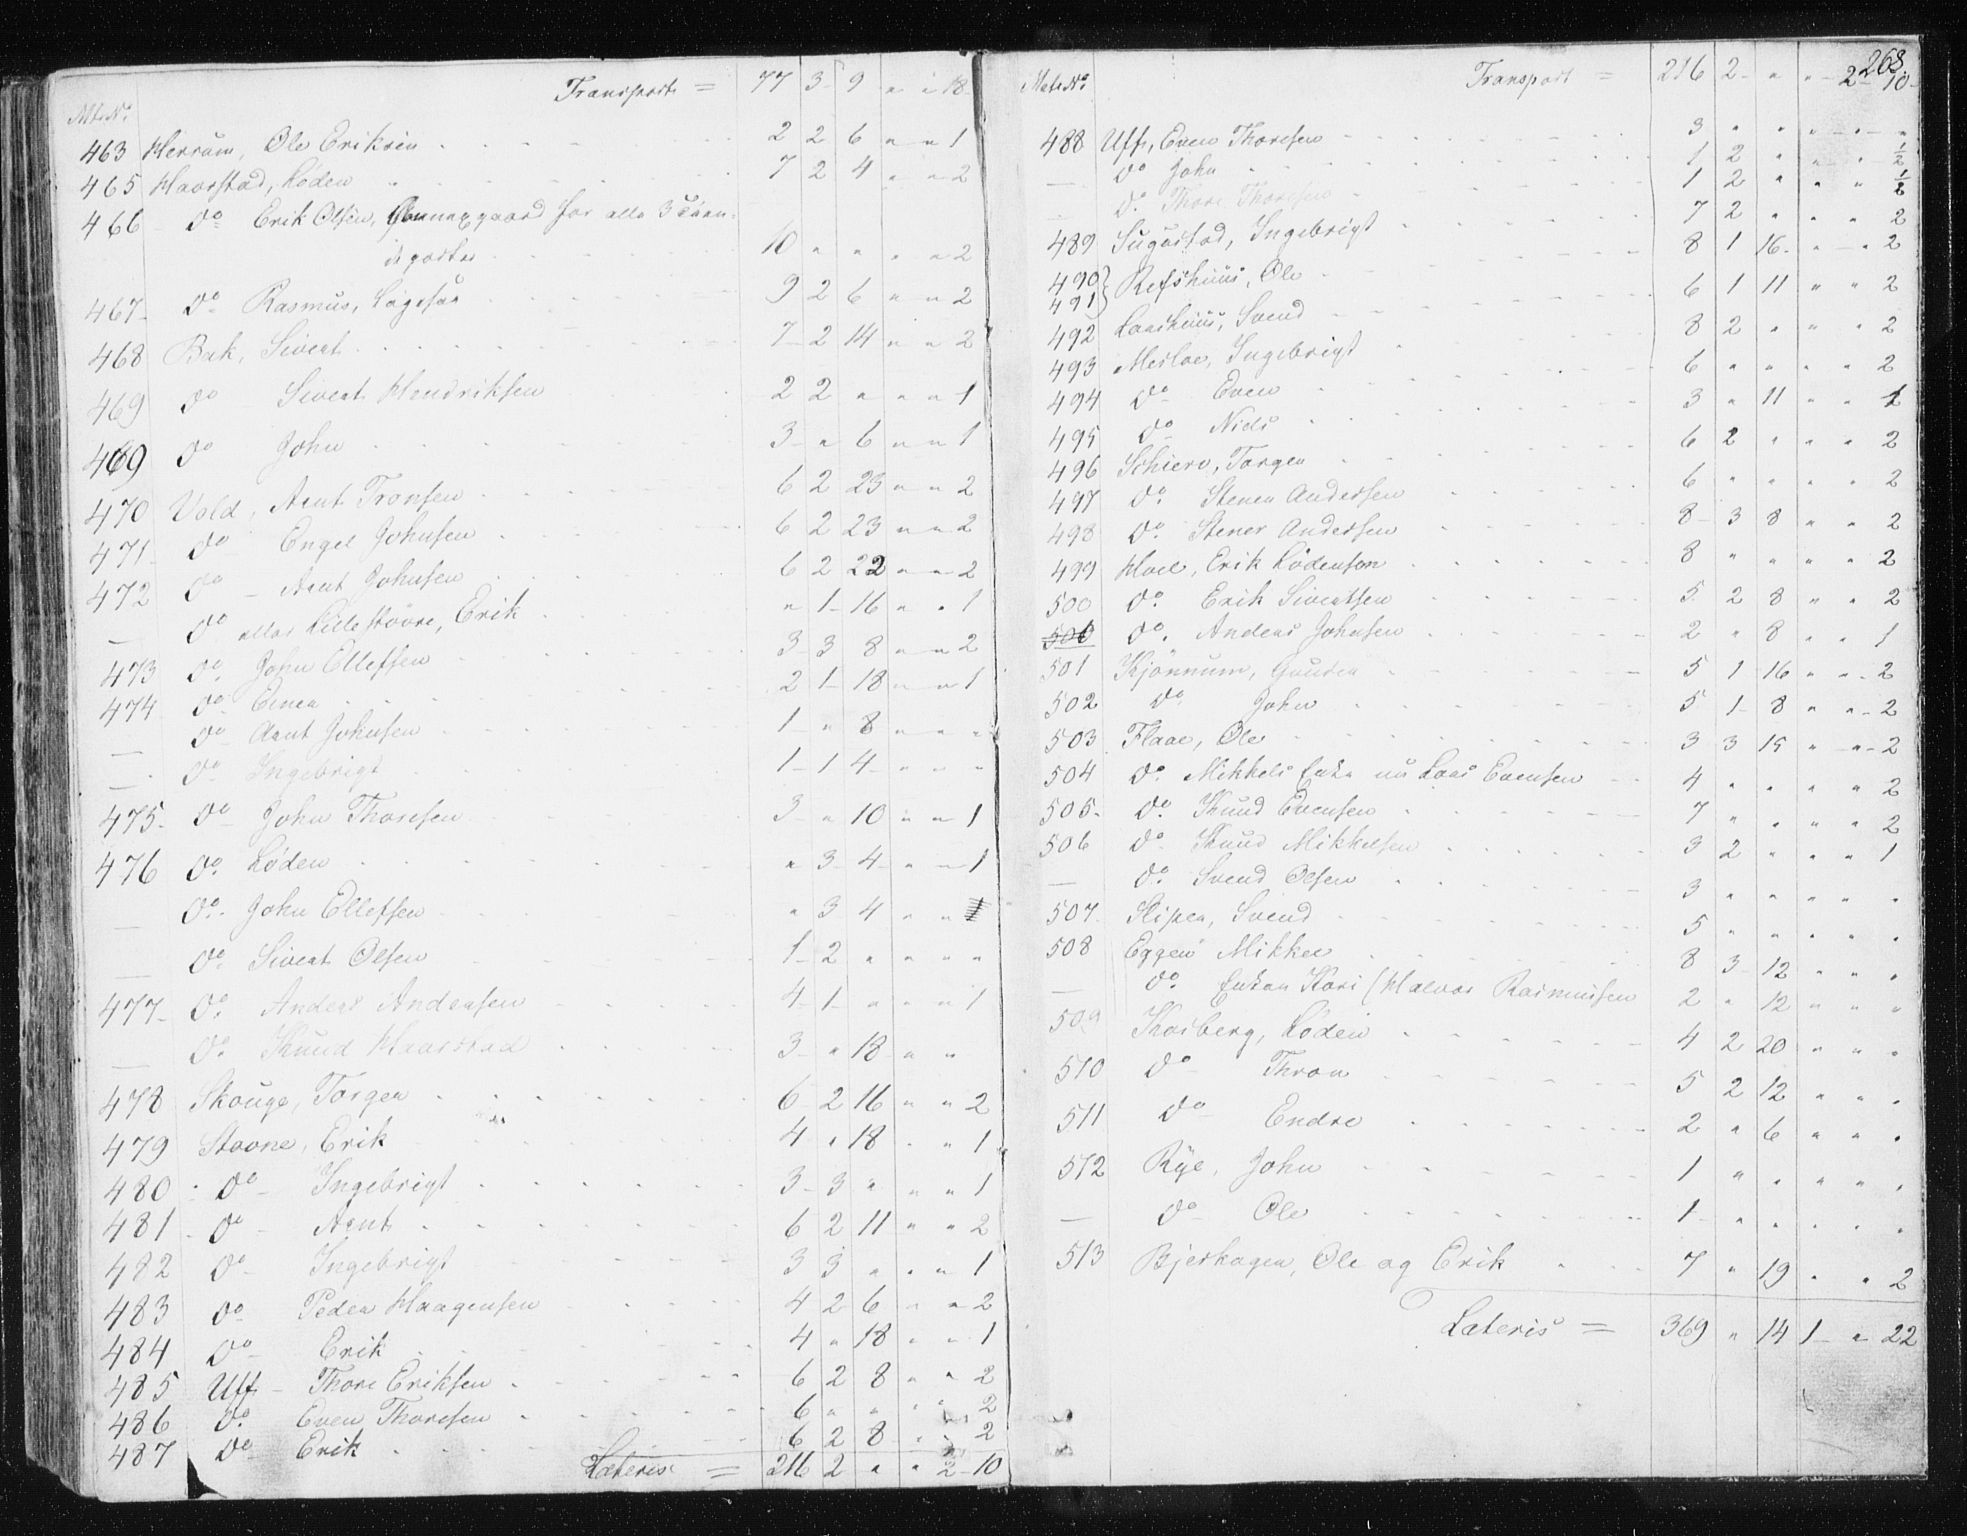 Transport = 77 3 9 " " 18
Mt. No.
463 Herram, Ole Eriksen 2 2 6 " " 1
465 Haarstad, Loden 7 2 4 " " 2
466 do Erik Olsen, for alle 3
10 " " " " 2
467 do Rasmus, 9 2 6 " " 2
468 Bak, Sivert 7 2 14 " " 2
469 do Sivert Hendriksen 2 2 " " " 1
469 do John 3 " 6 " " 1
470 Vold, Arnt Tronsen 6 2 23 " " 2
471 do Engel Johnsen 6 2 23 " " 2
472 do Arnt Johnsen 6 2 22 " " 2
— do eller Lillestovre, Erik " 1 16 " " 1
473 do John Ellefsen 3 3 8 " " 2
474 do Einer 2 1 18 " " 1
— do Arnt Johnsen 1 " 8 " " "
— do Ingebrigt 1 1 4 " " "
475 do John Thoresen 3 " 10 " " 1
476 do Loden " 3 4 " " 1
— do John Ellefsen " 3 4 " " 1
— do Sivert Olsen 1 2 " " " "
477 do Anders Andersen 4 1 " " " 1
— do Knud Haarstad 3 " 18 " "
478 Skouge, Torger 6 2 16 " " 2
479 Stovne, Erik 4 " 18 " " 1
480 do Ingebrigt 3 3 " " " 1
481 do Arnt 6 2 11 " " 2
482 do Ingebrigt 3 3 " " " 1
483 do Peder Haagensen 4 2 6 " " 2
484 do Erik 4 " 18 " " 1
485 Uff Thore Eriksen 6 2 8 " " 2
486 do Even Thoresen 6 " " " " 2
487 do Erik 6 2 8 " " 2
Lateris = 216 2 " " 2 10
268.
Matr No Transport = 216 2 " " 2 10
488 Uff, Even Thoresen 3 " " " " "
— do John 1 2 " " " ½
do Thore Thoresen 1 2 " " " ½
489 Sugustad, Ingebrigt 7 2 " " " 2
490 } Refshuus, Ole 8 1 16 " " 2
491
492 Laashuus, Svend 6 1 11 " " 2
493 Merloe, Ingebrigt 8 2 " " " 2
494 do Even 6 " " " " 2
495 do Niels 3 " 11 " " 1
496 Schiere, Torger 6 2 " " " 2
497 do Stener Andersen 6 " " " " 2
498 do Stener Andersen 8 3 8 " " 2
499 Hoel, Erik Lodensen 8 " " " " 2
500 do Erik Sivertsen 5 2 8 " " 2
501 do Anders Johnsen 2 " 8 " " 1
501 Kjönnum, Gunder 5 1 16 " " 2
502 do John 5 1 8 " " 2
503 Flaae, Ole 3 3 15 " " 2
504 do Mikkels Enke nu Lars Evensen 4 " " " " 2
505 do Knud Evensen 7 " " " " 2
506 do Knud Mikkelsen 3 2 " " " 1
— do Svend Olsen 3 " " " " "
507 Slipen, Svend 5 " " " " "
508 Eggen Mikkel 8 3 12 " " "
— do Enken Kari (Halvor Rasmussen 2 " 12 " " "
509 Korsberg, Loden 4 2 20 " " "
510 do Thron 5 2 12 " " "
511 do Endre 2 " 6 " " "
512 Rye, John 1 " " " " "
— do Ole 1 " " " " "
513 Bjerkagen, Ole og Erik 7 " 19 " " 2
Lateris = 369 " 14 1 " 22